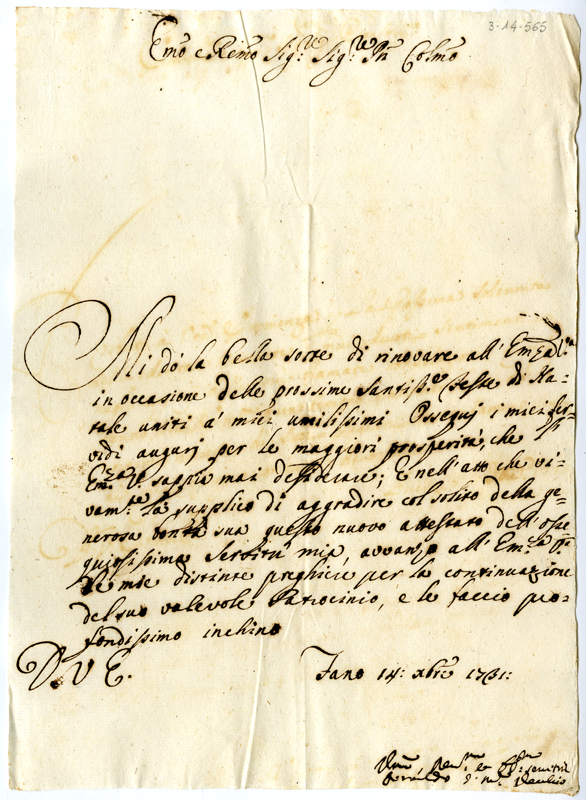 3-14-565
Emo e Remo Sigre Sigre Pn Colmo
Mi dò la bella sorte di rinovare all' Emza Vra
in occasione delle prossime Santisse Feste di Na-
tale uniti a' miei umilissimi Ossequj i miei fer-
vidi augurj per le maggiori prosperità, che
Emza V. sappia mai desiderare; E nell'atto che vi-
vamte la supplico di aggradire col solito della ge-
nerosa bontà sua questo nuovo attestato dell'osse
quiosissima Servitù mia, avvanzo all' Emza
le mie distinte preghiere per la continuazione
del suo valevole Patrocinio, e le faccio pro-
fondissimo inchino
D. V. E.
Fano 14: xbre 1731: